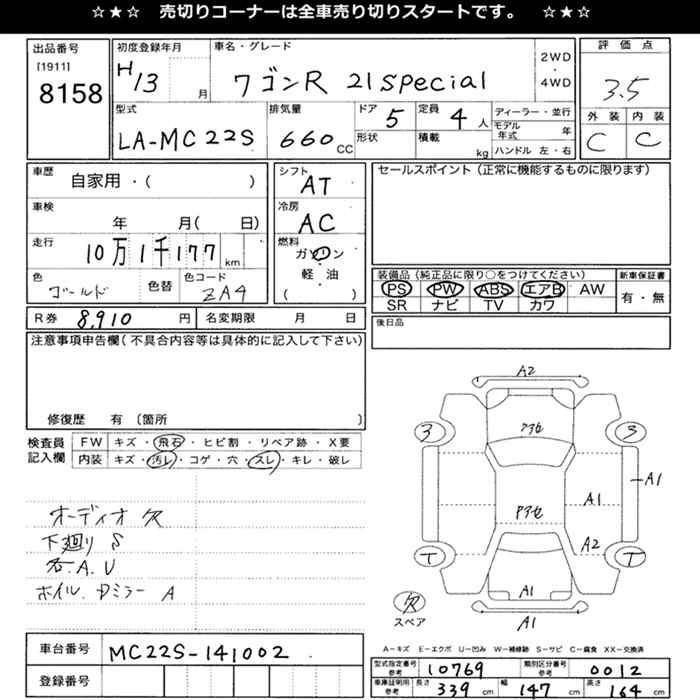 ☆★☆ 売切りコーナーは全車売り切りスタートです。 ☆★☆
出品番号 [1911] 8158
初度登録年月 H13 月
車名・グレード ワゴンR 21special
2WD・4WD
評価点 3.5
外装 C 内装 C
型式 LA-MC22S
排気量 660 CC
ドア 5 定員 4 人
形状 積載 kg
ディーラー・並行
モデル年式 年
ハンドル 左・右
車歴 自家用・( )
シフト AT
車検 年 月( 日)
冷房 AC
走行 10万1千177 km
燃料 ガソリン 軽・油 ( )
色 ゴールド 色替 色コード ZA4
R券 8,910 円 名変期限 月 日
セールスポイント(正常に機能するものに限ります)
装備品(純正品に限り○をつけてください) 新車保証書
PS PW ABS エアB AW 有・無
SR ナビ TV カワ
後日品
注意事項申告欄(不具合内容等は具体的に記入して下さい)
修復歴 有 〔箇所 〕
検査員記入欄
FW キズ・飛石・ヒビ割・リペア跡・X要
内装 キズ・汚レ・コゲ・穴・スレ・キレ・破レ
オーディオ欠
下廻り S
各A.U
ホイル、Dミラー A
A2
アセ
3 3
A1
アセ
A1
A2
T T
A1
欠 スペア
A1
A-キズ E-エクボ U-凹み W-補修跡 S-サビ C-腐食 XX-交換済
車台番号 MC22S-141002
登録番号
型式指定番号 参考 10769 類別区分番号 参考 0012
車庫証明用 参考 長さ 339 cm 幅 147 cm 高さ 164 cm